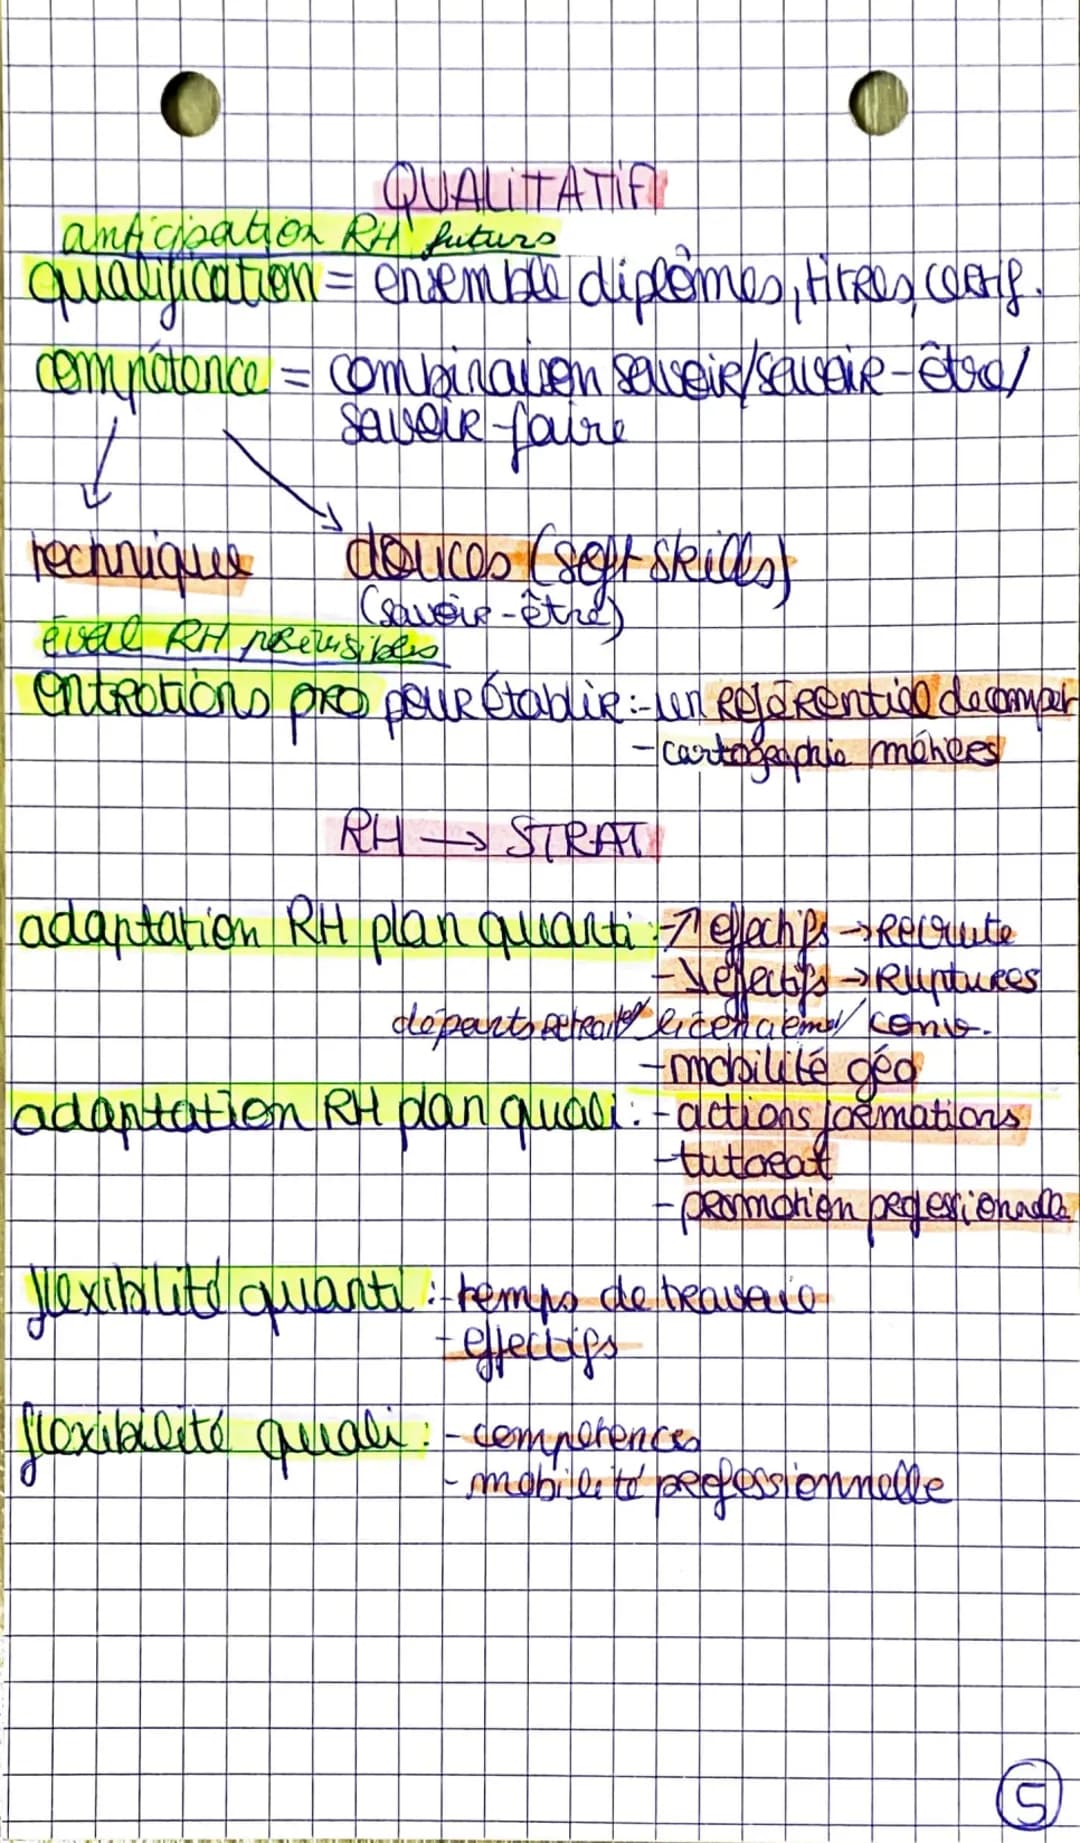 QUALITATIF
anticipation RH futurs
qualification = ensemble diplômes, titres, certif.
compétence = combinaison savoir/savoir-être/
savoir-faire
techniques douces (soft skills)
(savoir-être)
éval RH
entretiens pro pour établir : - un référentiel de compet
- cartographie métiers
RH → STRAT
adaptation RH plan quanti : - ↗ effectifs → recrute
- ↘ effectifs → ruptures
départs retraite/ licenciement/ conv.
- mobilité géo
adaptation RH plan quali : - actions formations
- tutorat
- promotion professionnelle
flexibilité quanti : - temps de travail
- effectifs
flexibilité quali : - compétences
- mobilité professionnelle
5